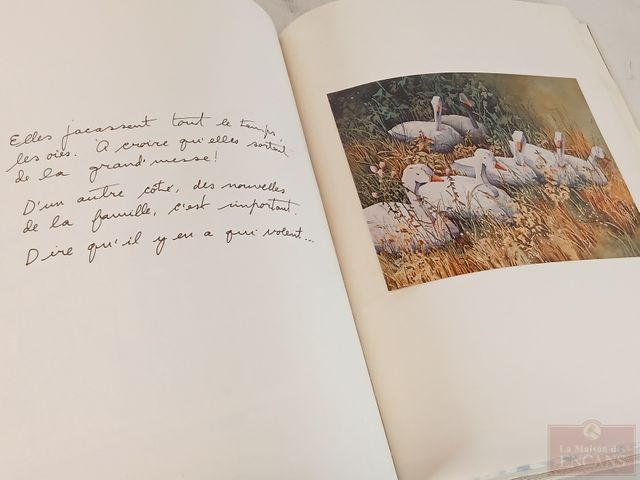 Elles jacassent tout le temps,
les oies. À croire qu'elles sortent
de la grand'messe!
D'un autre côté, des nouvelles
de la famille, c'est important.
Dire qu'il y en a qui volent...
La Maison des
ENCANS